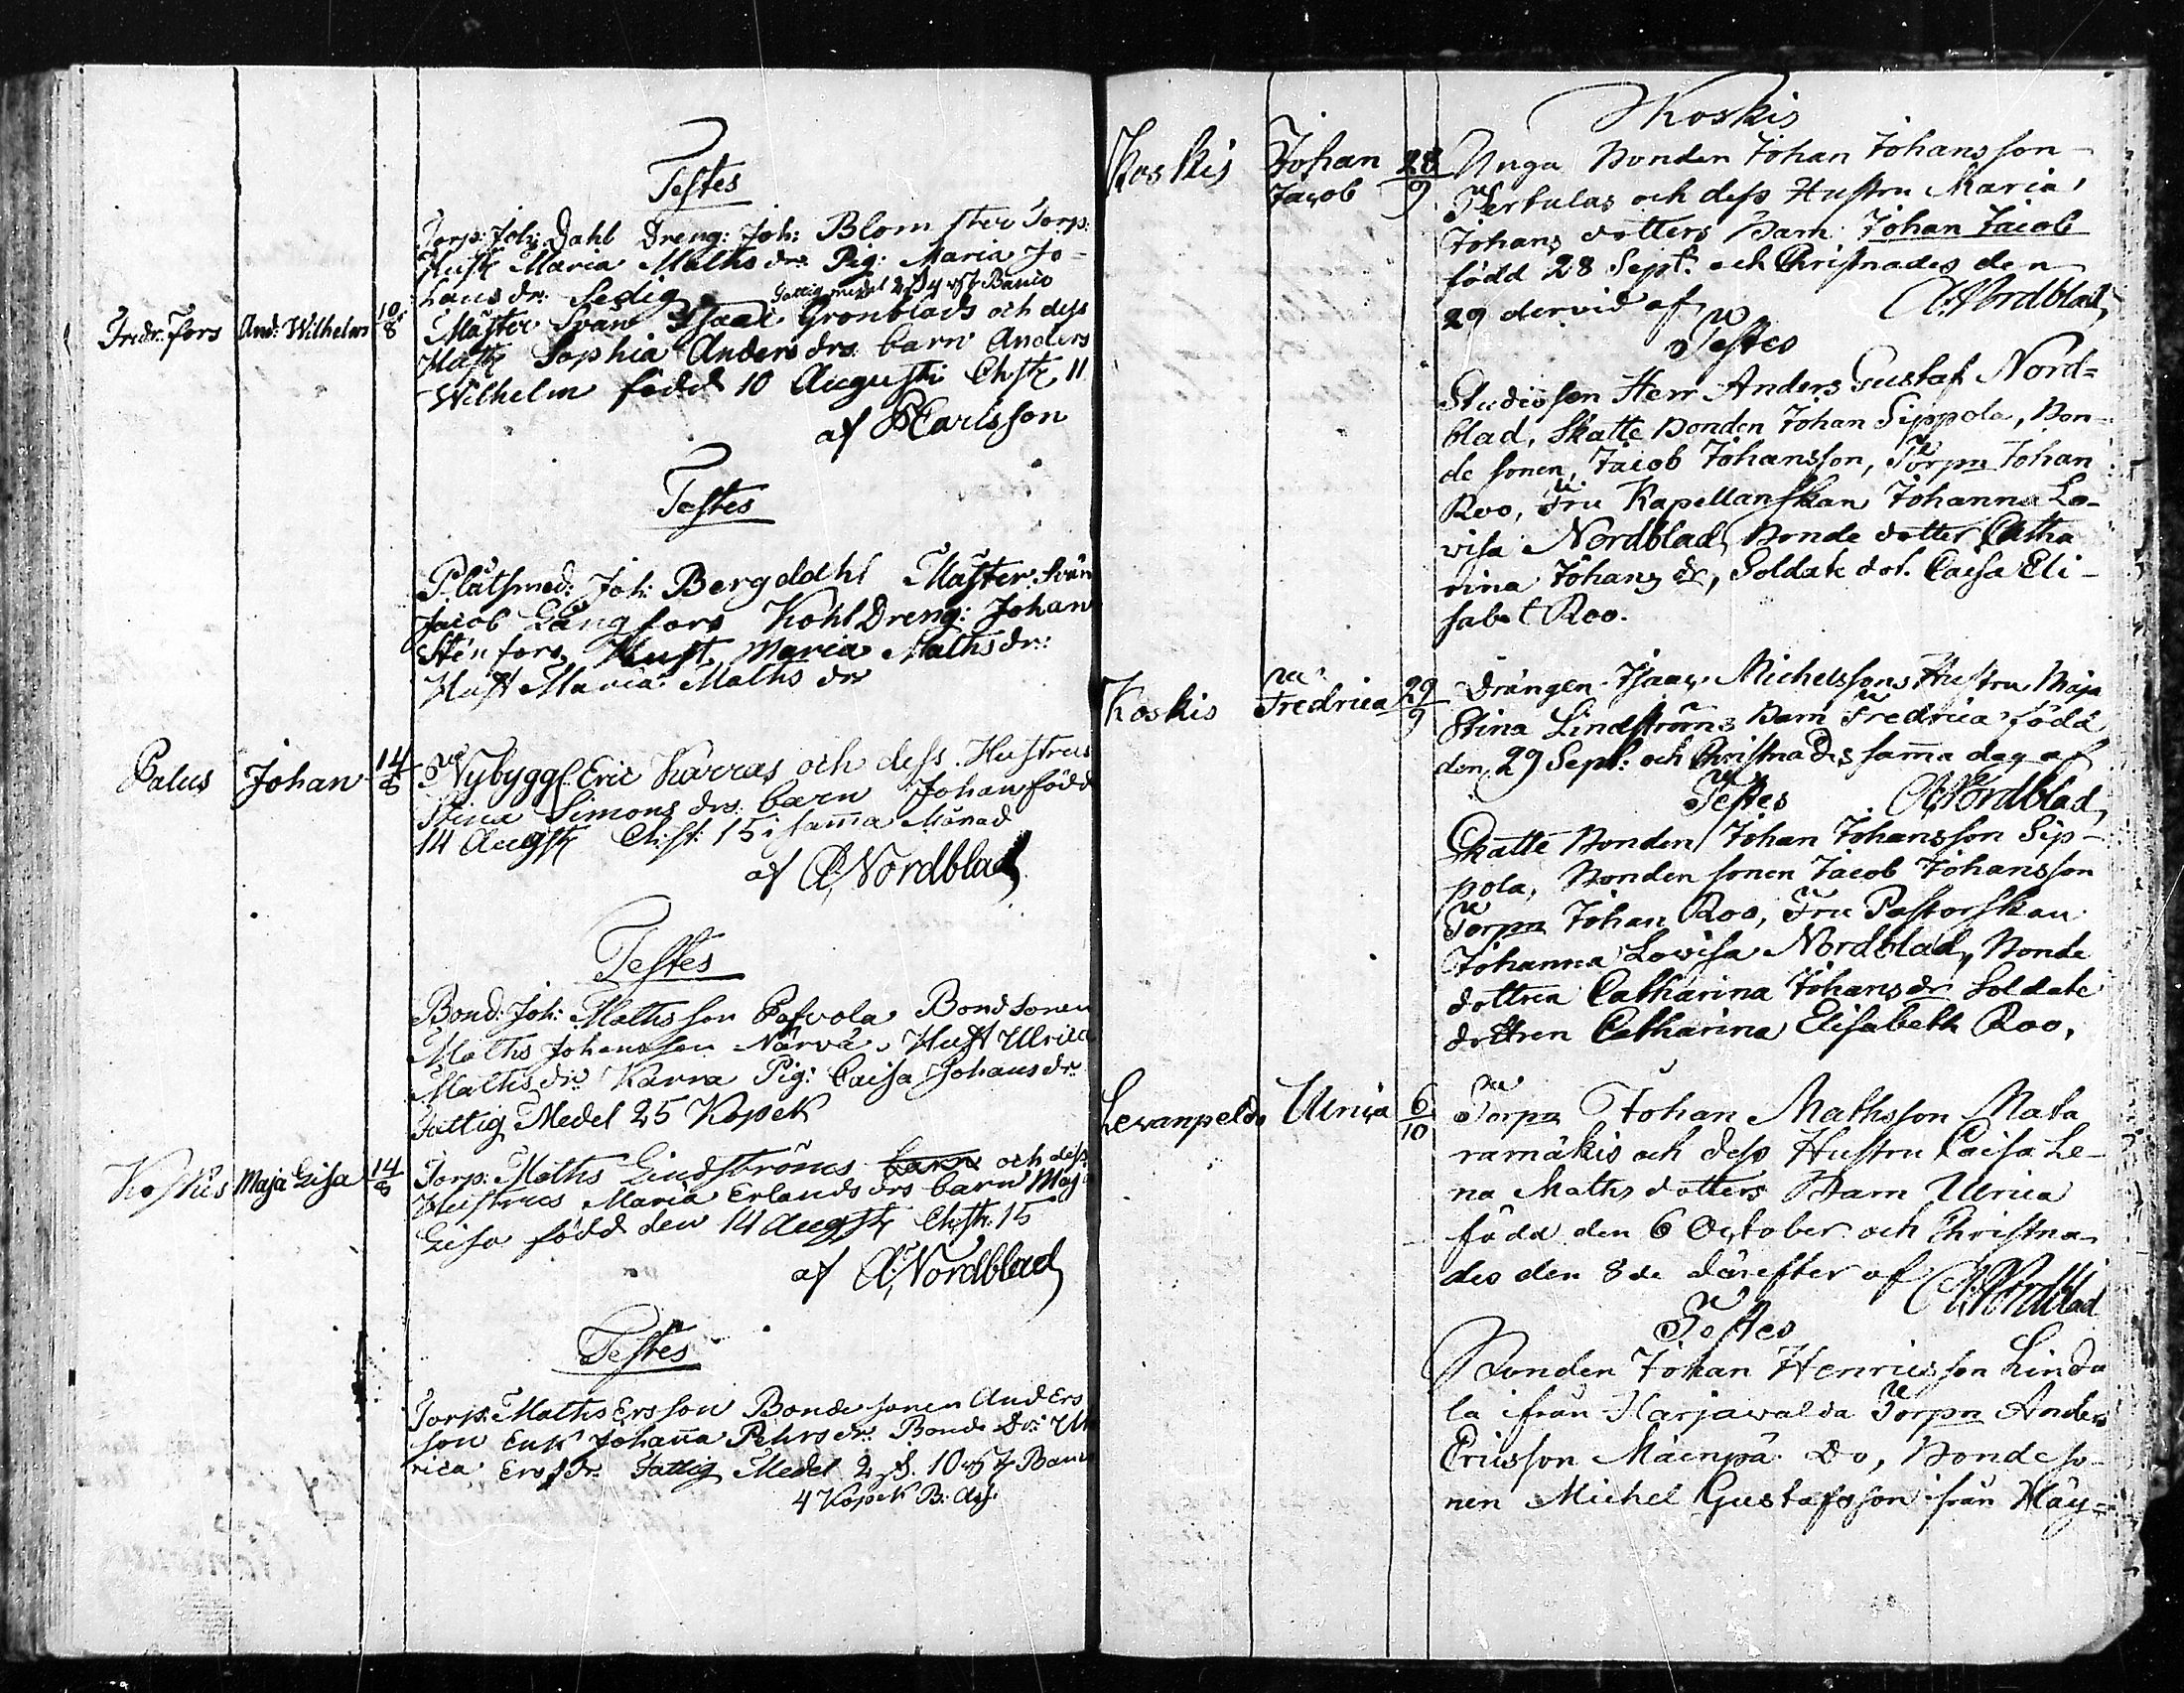 Testes
Torp: Joh: Dahl Dreng: Joh: Blomster Torp:
Hust Maria Mathsdr: Pig: Maria Jo-
hansdr. Ledig Fattig medel
Fredr: fors And: Wilhelm 10/8 Mäster Svän Isaac Grönblads och dess
Hust Sophia Andersdrs barn Anders
Wilhelm född 10 Augusti Chst 11
af Carlsson
Testes
Plåtsmed: Joh: Bergdahl Mäster Svän
Jacob Långfors KohlDreng: Johan
Stenfors Hust Maria Mathsdr:
Hust Maria Maths dr
Palus Johan 14/8 Nybygg Eric Karras och dess Hustrus
Stina Simons drs barn Johan född
14 Augst Chst: 15 i samma Månad
af A. Nordblad
Testes
Bond: Joh: Mathsson Pafvola Bondsonen
Maths Johansson Närvä Hust Ulrica
Mathsdr Karra Pig: Caisa Johansdr.
Fattig Medel 25 Kopek
Koskis Maja Lisa 14/8 Torp: Maths Lindströms barn och dess
Hustrus Maria Erlandsdrs barn Maja
Lisa född den 14 Augst Chst: 15
af A. Nordblad
Testes
Torp: Maths Ersson Bondesonen And Ers
son Enk Johanna Pehrsdr: Bond: Dr: Ul
rica Ersdr. Fattig Medel 2 10 Banco
4 Kopek B: Ass:
Koskis
Koskis Johan 28/9 Unga Bonden Johan Johansson
Jacob Pertulas och dess Hustru Maria
Johans dotters Barn Johan Jacob
född 28 Sept: och Christnades den
29 dervid af A. Nordblad
Testes
Studiosen Herr Anders Gustaf Nord=
blad, Skatte Bonden Johan Sippola, Bon-
de sonen Jacob Johansson, Torpn Johan
Roo, Fru Kapellanskan Johanna Lo-
visa Nordblad, Bonde dotter Catha
rina Johans dr, Soldate dot. Caisa Eli-
sabet Roo.
Koskis Fredrica 29/9 Drängen Isaac Michelssons Hustru Maja
Stina Lindströms Barn Fredrica född
den 29 Sept: och Christnades samma dag af
Testes A. Nordblad
Skatte Bonden Johan Johansson Sip-
pola, Bonden sonen Jacob Johansson
Torpn Johan Roo, Fru Pastorskan
Johanna Lovisa Nordblad, Bonde
dottren Catharina Johansdr Soldate
dottren Catharina Elisabeth Roo,
Levanpeldo Ulrica 6/10 Torpn Johan Mathsson Mata
ramäkis och dess Hustru Caisa Le-
na Maths dotters Barn Ulrica
född den 6 October och Christna-
des den 8de därefter af A. Nordblad
Testes
Bonden Johan Henricsson Linda
la ifrån Harjavalda Torpn Anders
Ericsson Mäenpä Do, Bonde so-
nen Michel Gustafsson från Häy=